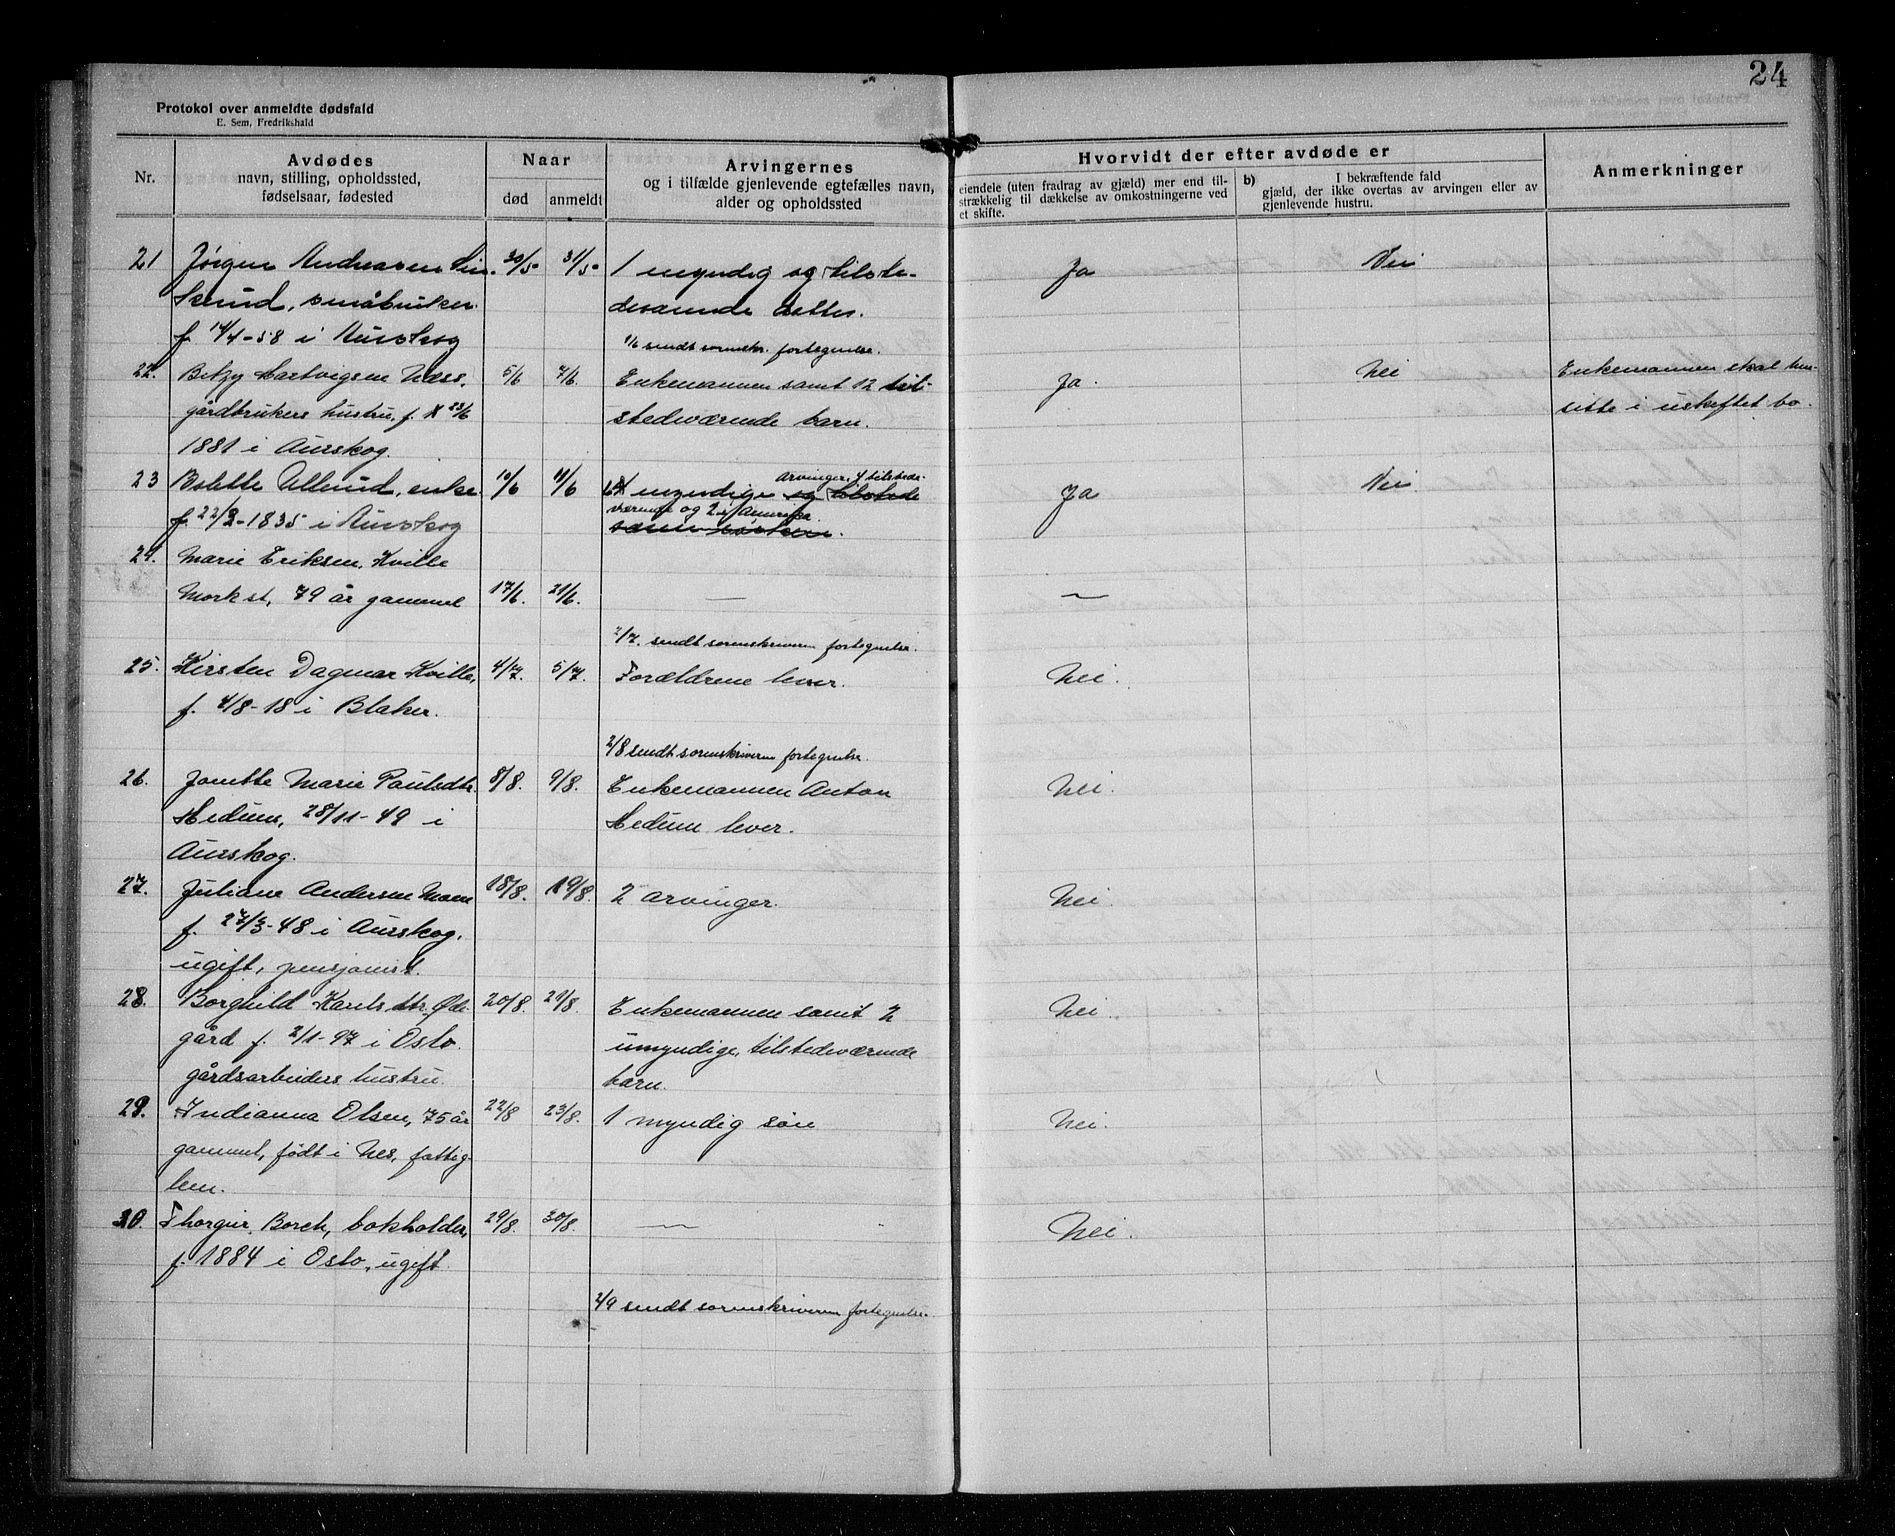 24
Protokol over anmeldte dødsfald
E. Sem, Fredrikshald
Nr.
Avdødes
navn, stilling, opholdssted,
fødselsaar, fødested
Naar
død
anmeldt
Arvingernes
og i tilfælde gjenlevende egtefælles navn,
alder og opholdssted
Hvorvidt der efter avdøde er
eiendele (uten fradrag av gjæld) mer end til-
strækkelig til dækkelse av omkostningerne ved
et skifte.
b) I bekræftende fald
gjæld, der ikke overtas av arvingen eller av
gjenlevende hustru.
Anmerkninger
21 Jörgen Andreasen 30/5 31/5 1 myndig og tilste- Ja Nei
småbruker
deværende datter.
f. 14/4-58 i Aurskog
1/6 sendt sorenskr. fortegnelse.
22. Betzy Hartvigsen Næss, 5/6 7/6 Enkemannen samt 12 til- Ja. Nei Enkemannen skal hen-
gårdbrukers hustru, f. 23/6 stedeværende barn. sitte i uskiftet bo.
1881 i Aurskog.
23 Bolette Ullerud, enke 10/6 11/6 6 myndige og tilstede Ja Nei
arvinger, 4 tilstede-
værende og 2 i Amerika.
f. 22/2-1835 i Aurskog
24. Marie Eriksen, Kville
Mork st, 79 år gammel 17/6. 21/6. — —
2/7. sendt sorenskriveren fortegnelse.
25. Kirsten Dagmar Kville, 4/7. 5/7. Forældrene lever. Nei.
f. 4/8-18 i Blaker.
2/8 sendt sorenskriveren fortegnelse.
26. Janette Marie Paulsdtr. 8/8. 9/8. Enkemannen Anton Nei.
Hedum, 28/11-49 i Hedum lever.
Aurskog.
27. Juliane Andersen Moen 18/8. 19/8. 2 arvinger. Nei.
f. 27/3-48 i Aurskog,
ugift, pensjonist.
28. Borghild Karlsdtr. Øde- 20/8. 21/8. Enkemannen samt 2 Nei.
gård f. 2/1-97 i Oslo. umyndige, tilstedeværende
gårdsarbeiders hustru. barn.
29. Indianna Olsen, 75 år 22/8 23/8. 1 myndig sön Nei.
gammel, födt i Nes, fattig-
lem.
30. Thorgeir Borch, bokholder, 29/8. 30/8. — Nei.
f. 1884 i Oslo, ugift.
2/9 sendt sorenskriveren fortegnelse.